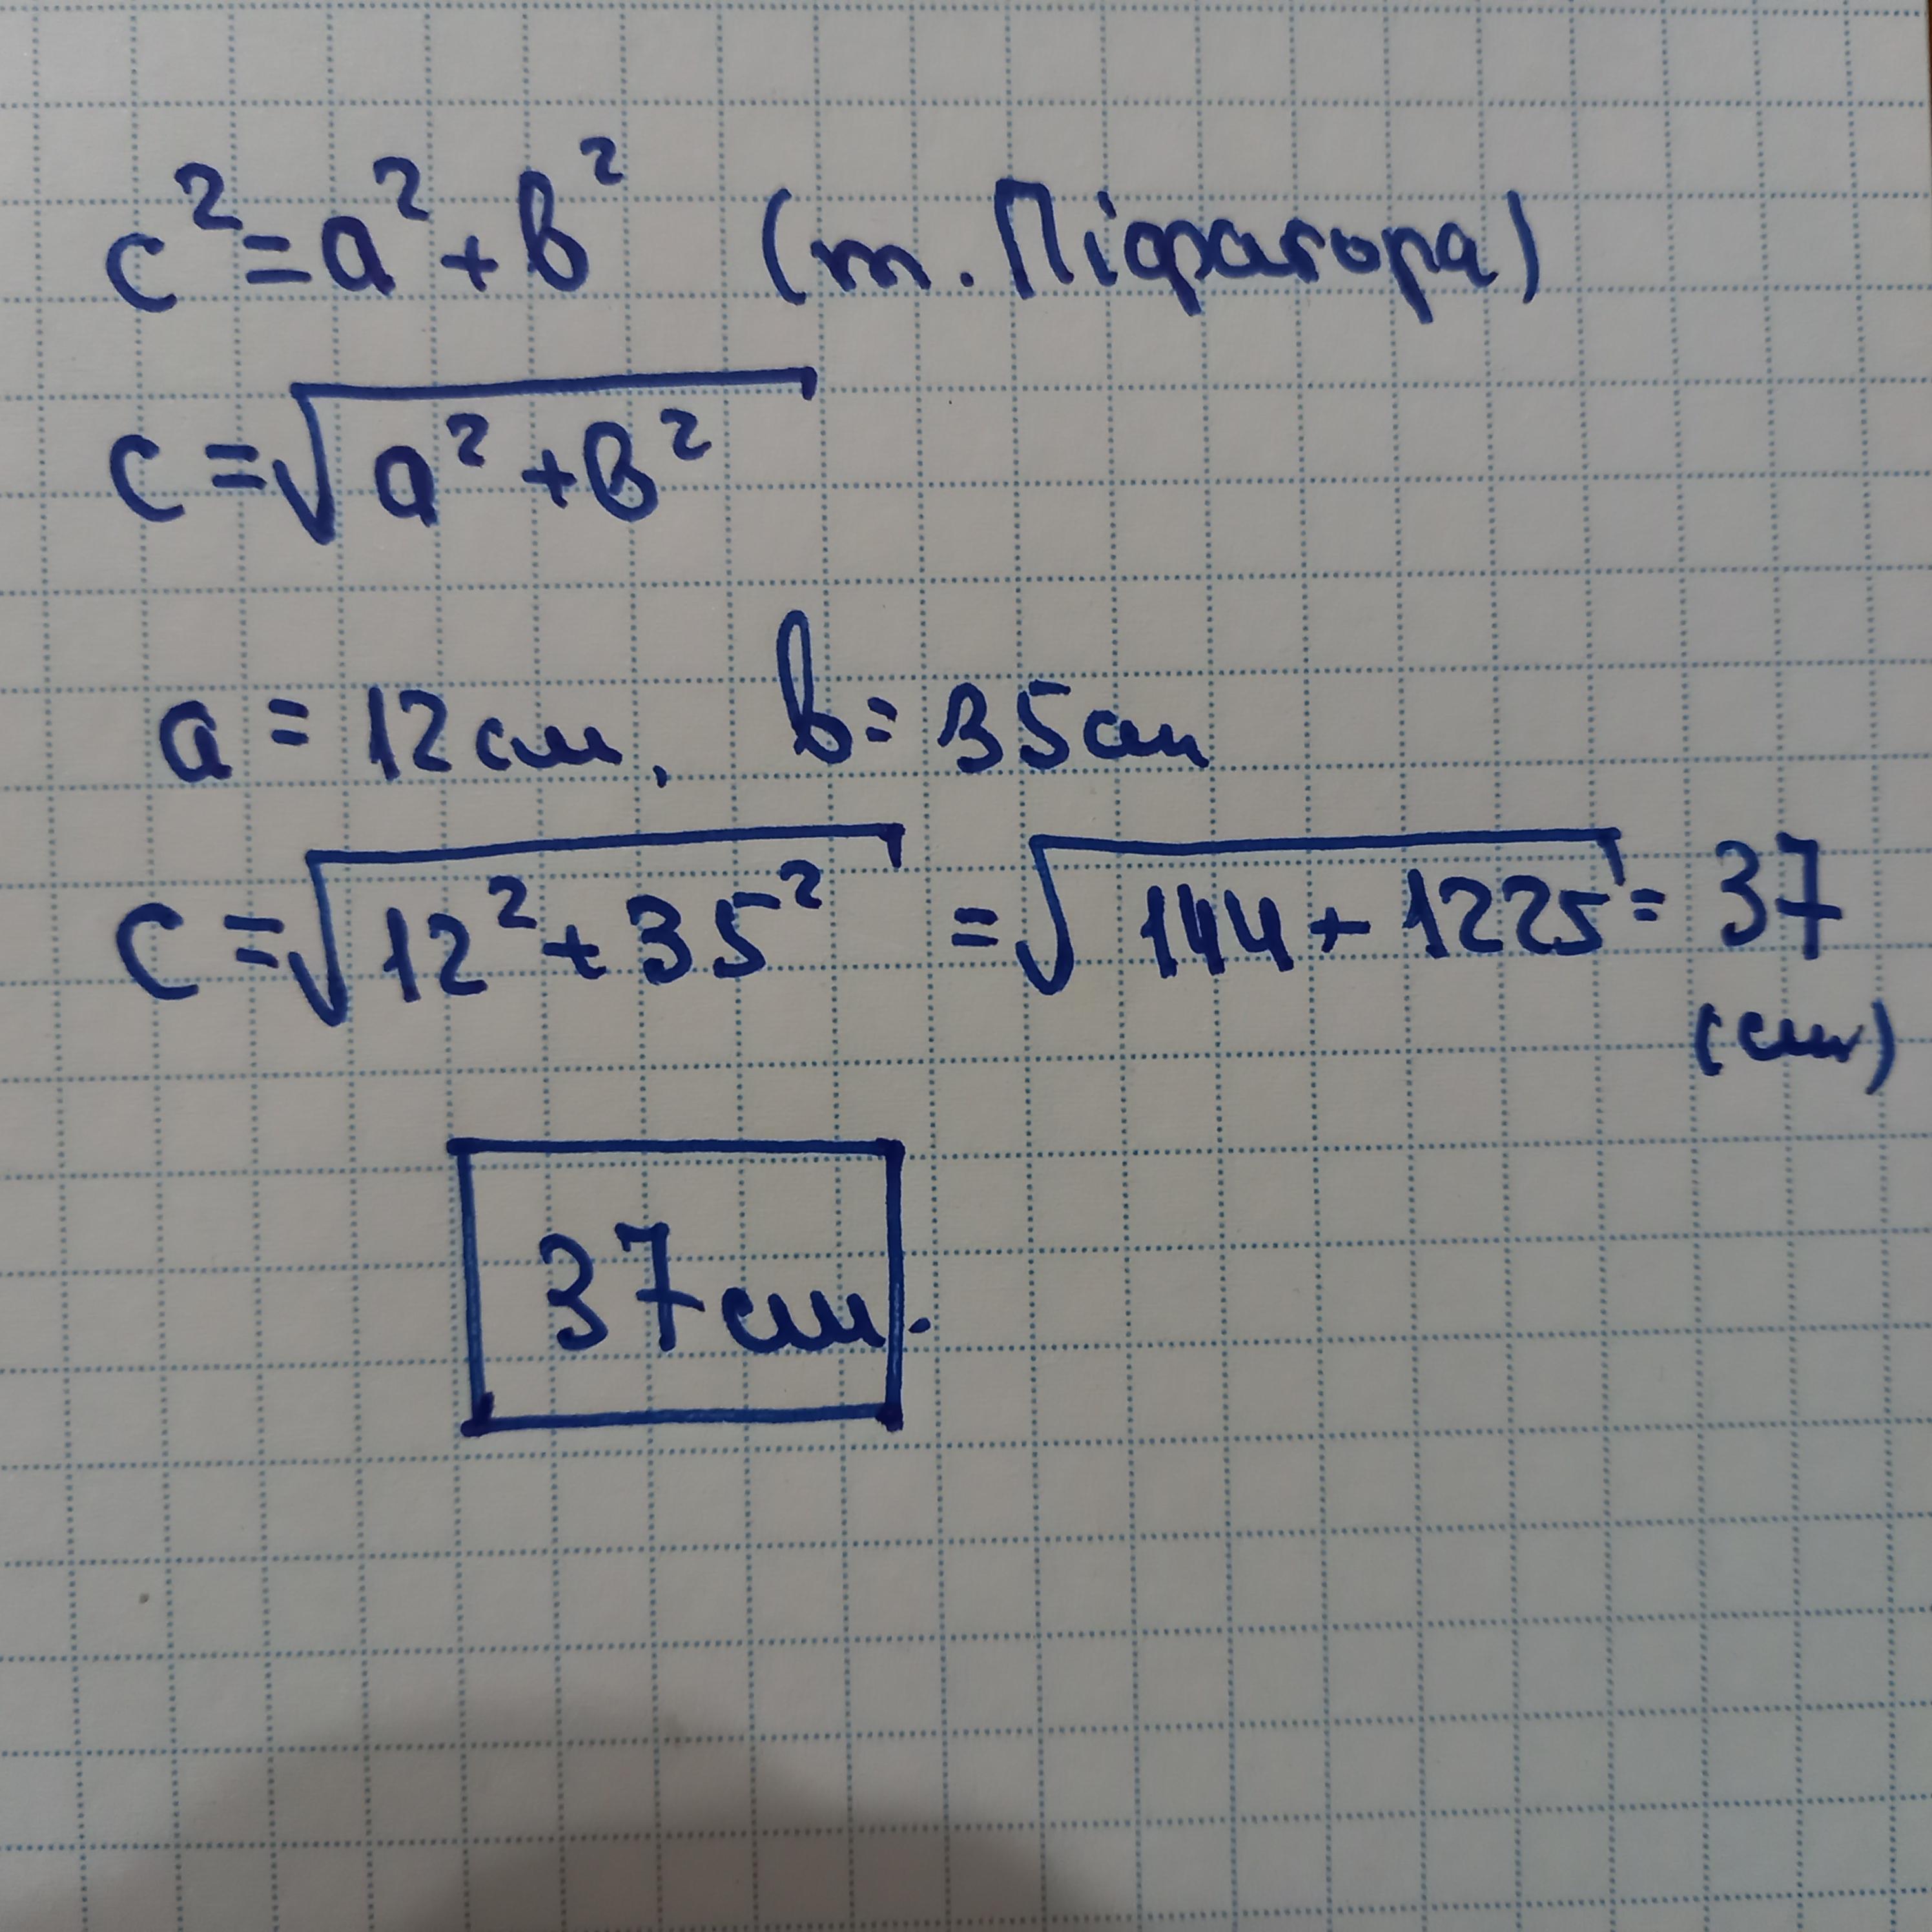 c² = a² + b² (т. Піфагора)
c = √a² + b²
a = 12 см, b = 35 см
c = √12² + 35² = √144 + 1225 = 37
(см)
37 см.